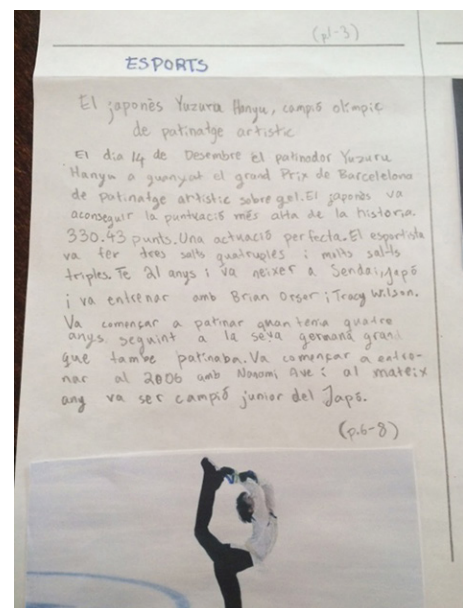 (p1-3)
ESPORTS
El japonès Yuzuru Hanyu, campió olímpic
de patinatge artístic
El dia 14 de Desembre el patinador Yuzuru
Hanyu a guanyat el grand Prix de Barcelelona
de patinatge artistic sobre gel. El japonès va
aconseguir la puntuació més alta de la historia.
330.43 punts. Una actuació perfecta. El esportista
va fer tres salts quatruples i molts salts
triples. Te 21 anys i va neixer a Sendai, Japó
i va entrenar amb Brian Orser i Tracy Wilson.
Va començar a patinar quan tenia quatre
anys seguint a la seva germana gran
que tambe patinaba. Va començar a entre-
nar al 2006 amb Nanami Ave i al mateix
any va ser campió junior del Japó.
(p.6-8)